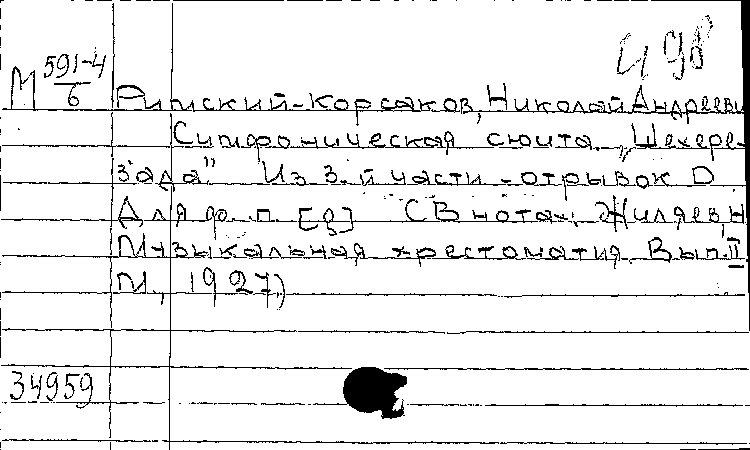 Ч 98
М 591-4/6
Римский-Корсаков, Николай Андрееви
Симфоническая сюита „Шехере-
зада" Из 3-й части - отрывок D
Для фо. п. [2] (В нотах: Жиляев, Н
Музыкальная хрестоматия. Вып. II
М., 1927.)
34959